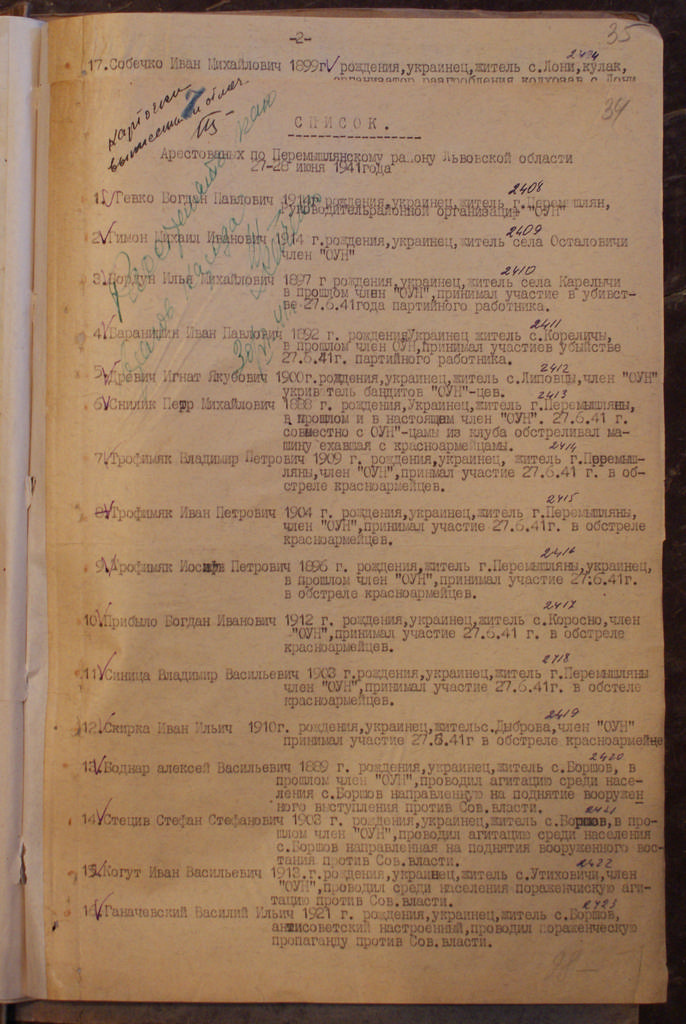 -2-
35
2424
17. Собечко Иван Михайлович 1899г рождения,украинец,житель с.Лони,кулак,
организатор разгробления колхозав с Лони
34
СПИСОК.
Арестованых по Перемышлянскому району Львовской области
27-28 июня 1941года
2408
1. Гевко Богдан Павлович 1914г рождения,украинец,житель г.Перемышлян,
руководительрайонной организацие "ОУН"
2409
2. Гимон Михаил Иванович 1914 г.рождения,украинец,житель села Осталовичи
член "ОУН"
2410
3. Бордун Илья Михайлович 1897 г рождения,украинец,житель села Карелычи
в прошлом член "ОУН",принимал участие в убивст-
ве 27.6.41года партийного работника.
2411
4. Баранишин Иван Павлович 1892 г. рождения,Украинец житель с.Кореличы,
в прошлом член ОУН,принимал участиев убыйстве
27.6.41г. партийного работника.
2412
5. Древич Игнат Якубович 1900г.рождения,украинец,житель с.Липовцы,член "ОУН"
укрив тель бандитов "ОУН"-цев.
2413
6. Снилик Петр Михайлович 1888 г. рождения,Украинец,житель г.Перемышляны,
в прошлом и в настоящем член "ОУН". 27.6.41 г.
совместно с ОУН"-цамы из клуба обстреливал ма-
шину ехавшая с красноармейцамы.
2414
7. Трофимяк Владимир Петрович 1909 г. рождения,украинец, житель г.Перемыш-
ляны,член "ОУН",принимал участие 27.6.41 г. в об-
стреле красноармейцев.
2415
8. Трофимяк Иван Петрович 1904 г. рождения,украинец,житель г.Перемышляны,
член "ОУН",принимал участие 27.6.41г. в обстреле
красноармейцев.
2416
9. Трофимяк Иосиф Петрович 1896 г. рождения,житель г.Перемышляны,украинец,
в прошлом член "ОУН",принимал участие 27.6.41г.
в обстреле красноармейцев.
2417
10. Прибыло Богдан Иванович 1912 г. рождения,украинец,житель с.Коросно,член
"ОУН",принимал участие 27.6.41 г. в обстреле
красноармейцев.
2418
11. Синица Владимир Васильевич 1903 г.рождения,украинец,житель г.Перемышляны
член "ОУН",принимал участие 27.6.41г. в обстеле
красноармейцев.
2419
12. Скирка Иван Ильич 1910г. рождения,украинец,жительс.Дыброва,член "ОУН"
принимал участие 27.6.41г в обстреле красноармейце
2420
13. Боднар алексей Васильевич 1889 г. рождения,украинец,житель с.Боршов, в
прошлом член "ОУН",проводил агитацию среди насе-
ления с.Боршов направленную на поднятие вооружен
ного выступления против Сов.власти.
2421
14. Стецив Стефан Стефанович 1903 г. рождения,украинец,житель с.Боршов,в про-
шлом член "ОУН",проводил агитацию среди населения
с.Боршов направленная на поднятия вооруженного вос-
тания против Сов.власти.
2422
15. Когут Иван Васильевич 1913.г.рождения,украинец,житель с.Утиховичи,член
"ОУН",проводил среди населения пораженчискую аги-
тацию против Сов.власти.
2423
16. Ганачевский Василий Ильич 1921 г. рождения,украинец,житель с.Боршов,
антисоветский настроенный,проводил пораженческую
пропаганду против Сов.власти.